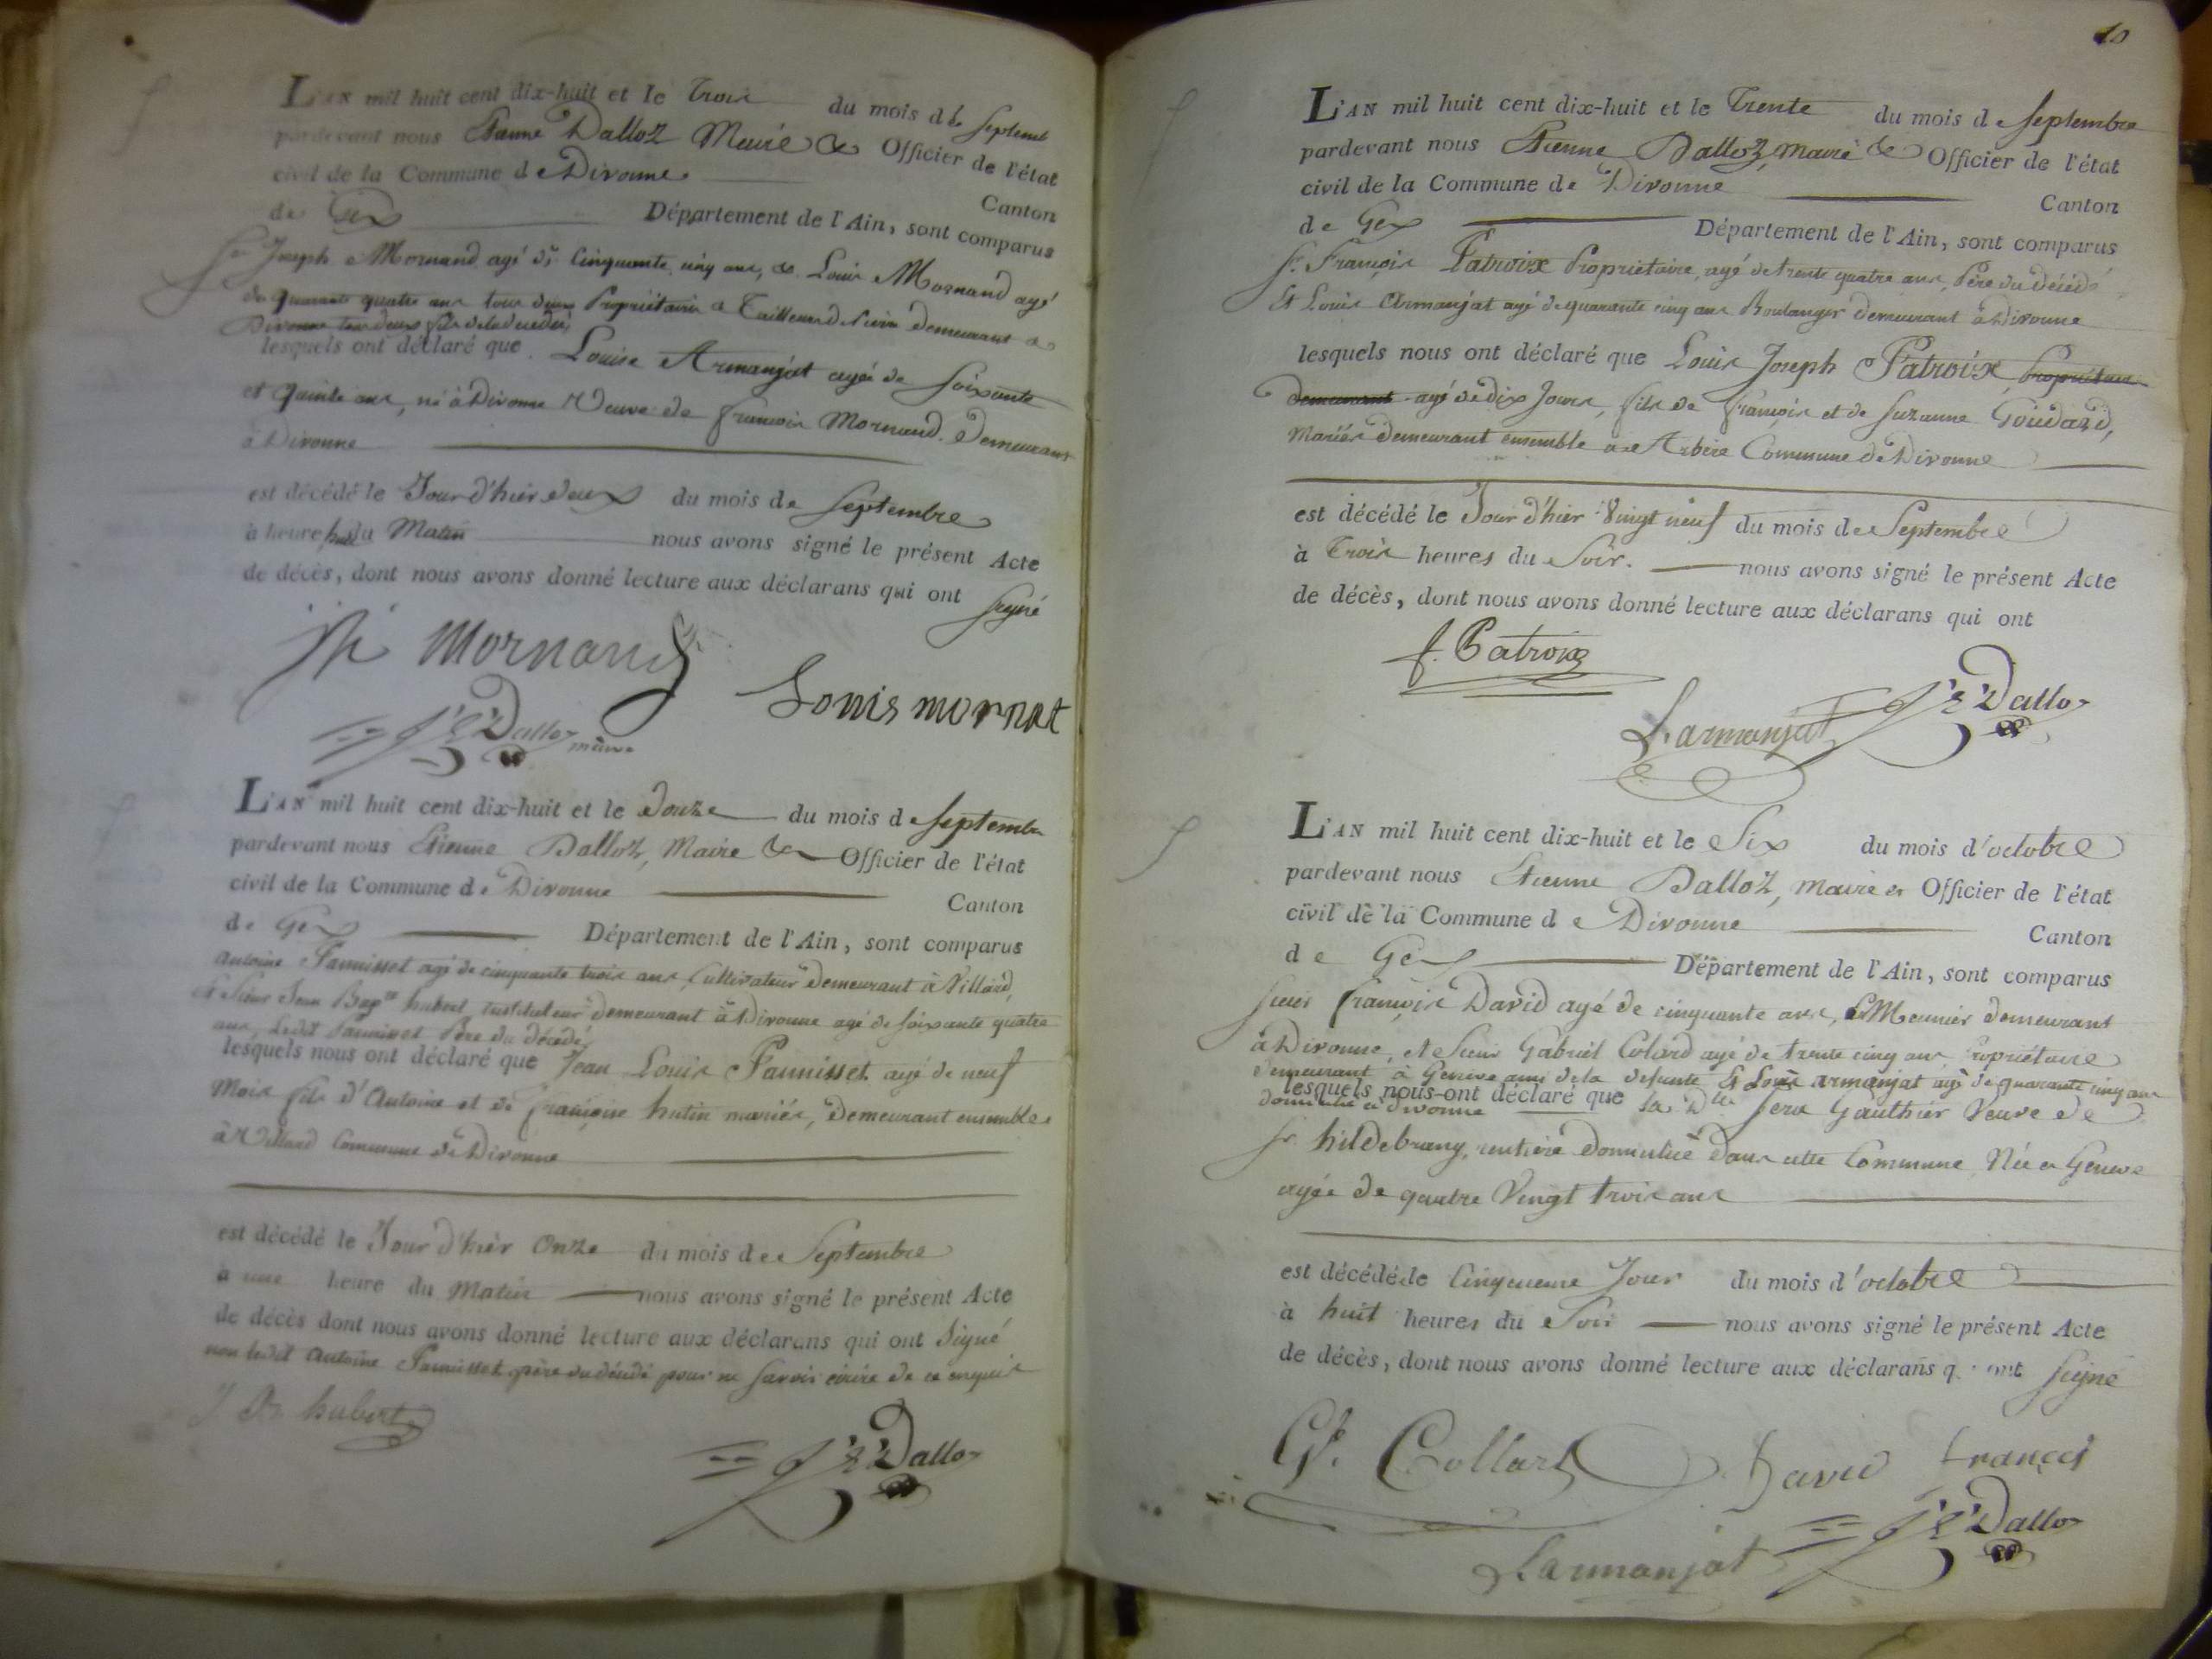 L'AN mil huit cent dix-huit et le Trois du mois de Septemb
pardevant nous Etienne Dalloz Maire & Officier de l'état
civil de la Commune de Divonne
Canton
de Gex Département de l'Ain, sont comparus
Sr Joseph Mornand agé de Cinquante cinq ans, & Louis Mornand agé
de quarante quatre ans tous deux Propriétaires & Tailleurs de demeurant à
Divonne tous deux fils de la décédée,
lesquels ont déclaré que Louise Armanjat agée de Soixante
et quinze ans, né à Divonne Veuve de françois Mornand. Demeurant
à Divonne
est décédé le Jour d'hier deux du mois de Septembre
à heure huit du Matin nous avons signé le présent Acte
de décès, dont nous avons donné lecture aux déclarans qui ont Signé
Mornand
Louis mornat
Dalloz maire
L'AN mil huit cent dix-huit et le Douze du mois de Septemb
pardevant nous Etienne Dalloz, Maire & Officier de l'état
civil de la Commune de Divonne
Canton
de Gex Département de l'Ain, sont comparus
antoine Pannisset agé de cinquante trois ans, Cultivateur demeurant à Villard,
et Sieur Jean Bapte hubert, instituteur demeurant à Divonne agé de soixante quatre
ans, Ledit Pannisset Père du décédé,
lesquels nous ont déclaré que Jean Louis Pannisset agé de neuf
Mois fils d'Antoine et de françoise hutin mariés, Demeurant ensemble
à Villard Commune de Divonne
est décédé le Jour d'hier Onze du mois de Septembre
à une heure du Matin nous avons signé le présent Acte
de décès dont nous avons donné lecture aux déclarans qui ont Signé
non ledit Antoine Pannisset père du décédé pour ne savoir écrire de ce enquis
J Bte hubert
Dalloz
10
L'AN mil huit cent dix-huit et le Trente du mois de Septembre
pardevant nous Etienne Dalloz, maire & Officier de l'état
civil de la Commune de Divonne
Canton
de Gex Département de l'Ain, sont comparus
Sr. François Patroix Propriétaire, agé de trente quatre ans, Père du décédé
Et Louis Armanjat agé de quarante cinq ans Boulanger demeurant à Divonne
lesquels nous ont déclaré que Louis Joseph Patroix Propriétaire
demeurant agé de dix Jours, fils de françois et de Suzanne Goudard,
Mariés demeurant ensemble à Arbère Commune de Divonne
est décédé le Jour d'hier Vingt neuf du mois de Septembre
à Trois heures du Soir. nous avons signé le présent Acte
de décès, dont nous avons donné lecture aux déclarans qui ont
f. Patroix
Dalloz
L. armanjat
L'AN mil huit cent dix-huit et le Six du mois d'octobre
pardevant nous Etienne Dalloz, maire et Officier de l'état
civil de la Commune de Divonne
Canton
de Gex Département de l'Ain, sont comparus
Sieur françois David agé de cinquante ans, Meunier demeurant
à Divonne, et Sieur Gabriel Colard agé de trente cinq ans Propriétaire
demeurant à Genève ami de la défunte Et Louis armanjat agé de quarante cinq ans
lesquels nous ont déclaré que la Dlle Gauthier Veuve de
domicilié à divonne
Sr. hildebrany, rentière domiciliée dans cette Commune Née à Genève
agée de quatre Vingt trois ans
est décédé le Cinquieme Jour du mois d'octobre
à huit heures du Soir nous avons signé le présent Acte
de décès, dont nous avons donné lecture aux déclarans qui ont signé
Gl. Collard
David françois
Dalloz
L armanjat